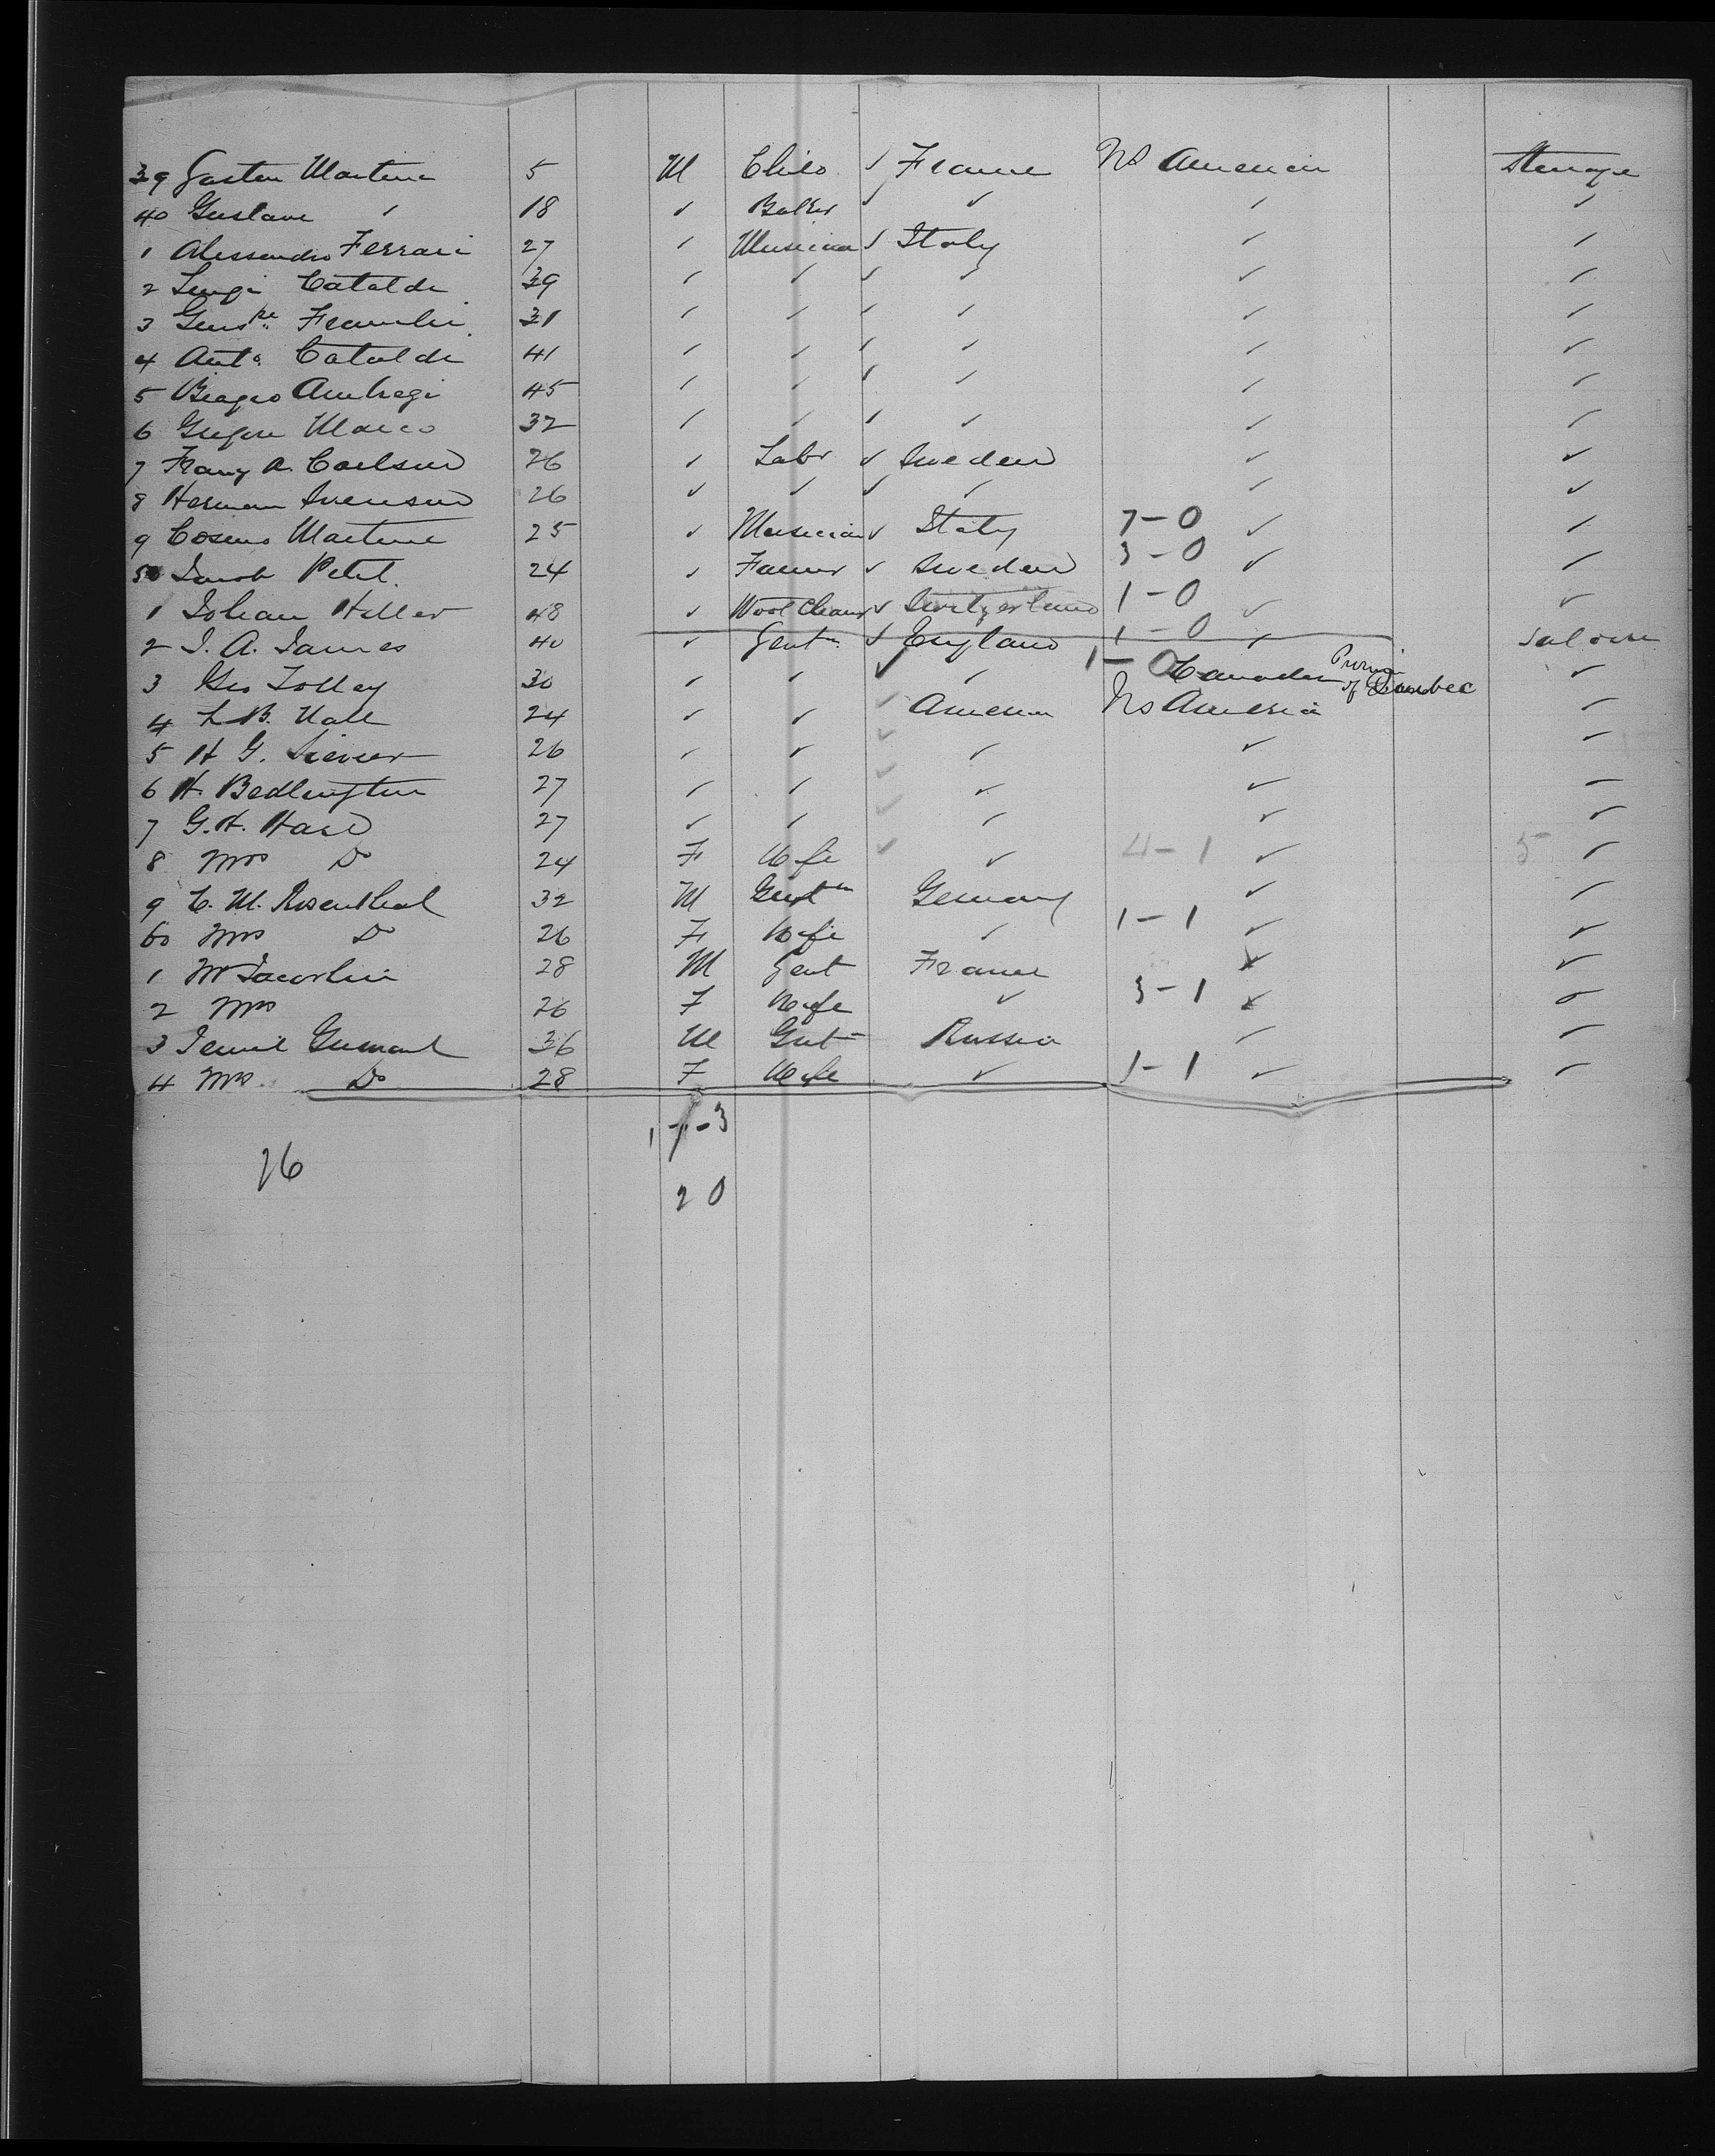 39 Gaston Martine 5 M Child ✓ France No America Steerage
40 Gustave ✓ 18 ✓ Baker ✓ ✓ ✓ ✓
1 Alessandro Ferrari 27 ✓ Musician ✓ Italy ✓ ✓
2 Luigi Cataldi 39 ✓ ✓ ✓ ✓ ✓ ✓
3 Giuspe 31 ✓ ✓ ✓ ✓ ✓ ✓
4 Anto Cataldi 41 ✓ ✓ ✓ ✓ ✓ ✓
5 Biagio Ambragi 45 ✓ ✓ ✓ ✓ ✓ ✓
6 Marco 32 ✓ ✓ ✓ ✓ ✓ ✓
7 Franz A. Carlson 26 ✓ Labr ✓ Sweden ✓ ✓
8 Herman Svenson 26 ✓ ✓ ✓ ✓ ✓ ✓
9 Cosimo Martine 25 ✓ Musician ✓ Italy 7-0 ✓ ✓
50 Jacob Petel. 24 ✓ Farmer ✓ Sweden 3-0 ✓ ✓
1 Johan Heller 48 ✓ Wool Cleaner ✓ Switzerland 1-0 ✓ ✓
2 J. A. James 40 ✓ Gentn ✓ England 1-0 ✓ Saloon
3 Geo Tolley 30 ✓ ✓ ✓ ✓ 1-0 Canada Provin of Quebec ✓
4 L B. Hall 24 ✓ ✓ ✓ America No America ✓
5 H G. 26 ✓ ✓ ✓ ✓ ✓ ✓
6 H. Bedlington 27 ✓ ✓ ✓ ✓ ✓ ✓
7 G. H. Hard 27 ✓ ✓ ✓ ✓ ✓ ✓
8 Mrs Do 24 F Wife ✓ ✓ 4-1 ✓ 5 ✓
9 C. M. Rosenthal 32 M Gentn Germany ✓ ✓
60 Mrs Do 26 F Wife ✓ 1-1 ✓ ✓
1 Mr 28 M Gent France ✓ ✓
2 Mrs 26 F Wife ✓ 3-1 ✓ ✓
3 36 M Gent Russia ✓ ✓
4 Mrs. Do 28 F Wife ✓ 1-1 ✓ ✓
26
20